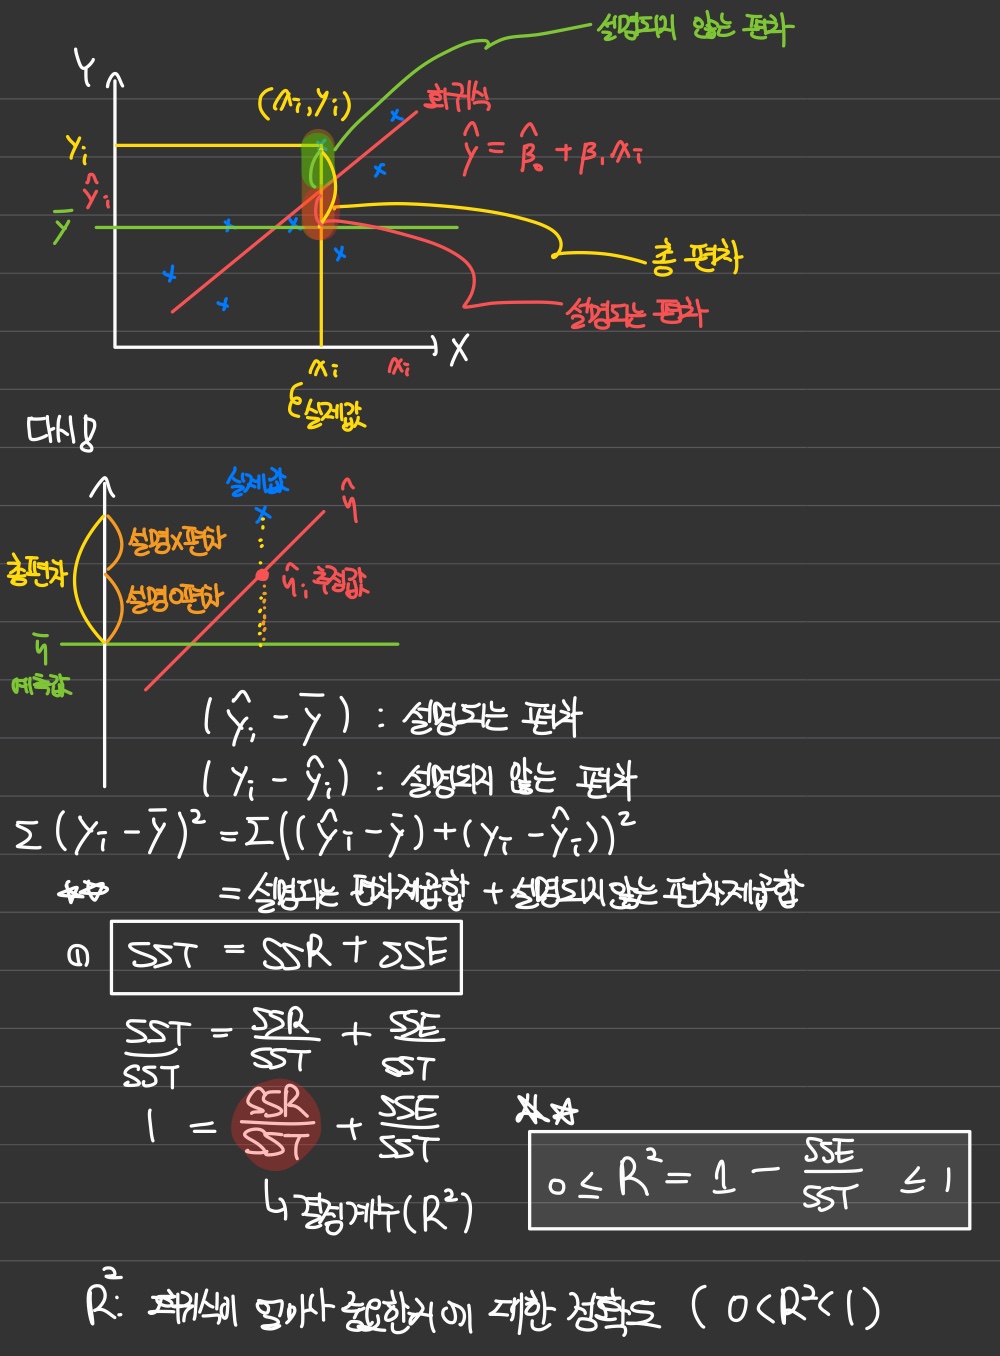 설명되지 않는 편차
Y
(xi, yi)
회귀식
yi
ŷ = β̂₀ + β₁xi
ŷi
ȳ
총 편차
설명되는 편차
X
xi
xi
실제값
다시!
실제값
ŷ
설명X편차
총편차
ŷi 추정값
설명O편차
ȳ
예측값
(ŷi - ȳ) : 설명되는 편차
(yi - ŷi) : 설명되지 않는 편차
Σ(yi - ȳ)² = Σ((ŷi - ȳ) + (yi - ŷi))²
☆☆ = 설명되는 편차제곱합 + 설명되지않는 편차제곱합
① SST = SSR + SSE
SST/SST = SSR/SST + SSE/SST
1 = SSR/SST + SSE/SST
☆☆
0 ≤ R² = 1 - SSE/SST ≤ 1
↳ 결정계수(R²)
R²: 회귀식이 얼마나 중요한거에 대한 정확도 (0<R²<1)